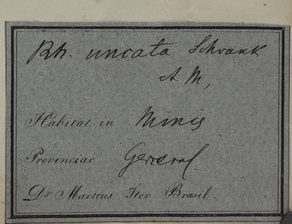 Rh. uncata Schrank
A M,
Habitat in Minis
Provinciae General
Dr Martius Iter Brasil.